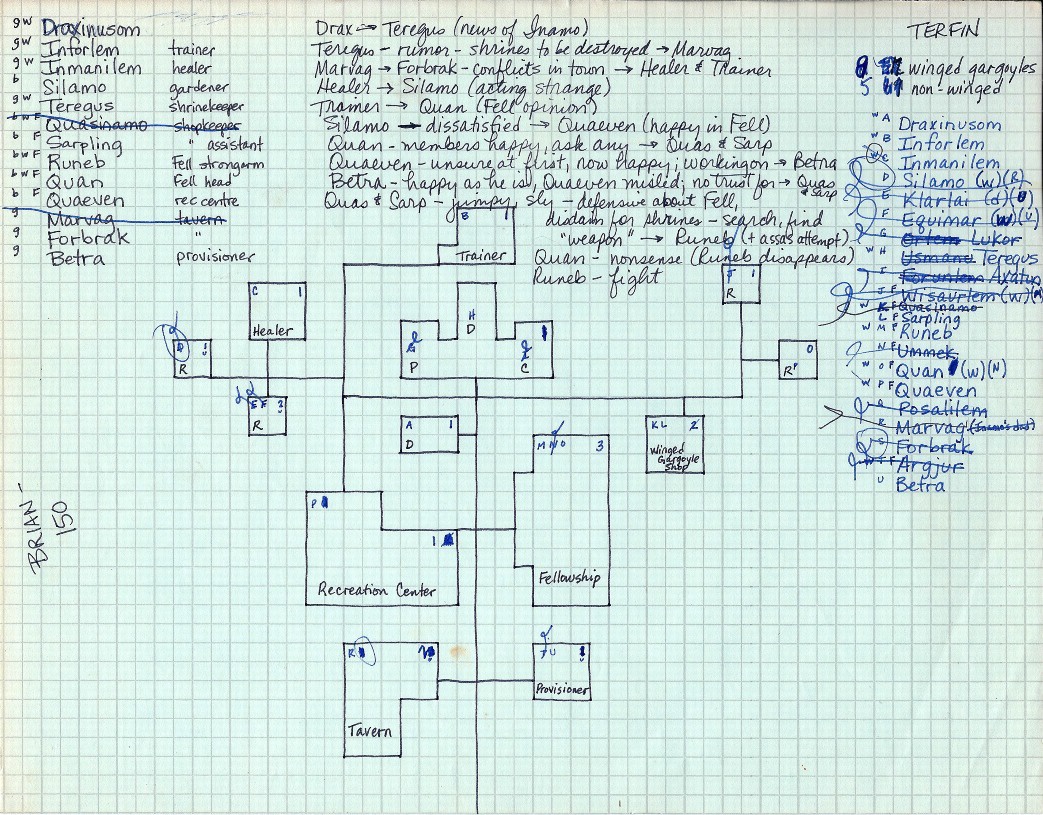 gw Draxinusom
gw Inforlem trainer
gw Inmanilem healer
b Silamo gardener
gw Teregus shrinekeeper
bwF Quasinamo shopkeeper
b F Sarpling " assistant
bwF Runeb Fell strongarm
bwF Quan Fell head
b F Quaeven rec centre
g Marvag tavern
g Forbrak "
g Betra provisioner
Drax → Teregus (news of Inamo)
Teregus - rumor - shrines to be destroyed → Marvag
Marvag → Forbrak - conflicts in town → Healer & Trainer
Healer → Silamo (acting strange)
Trainer → Quan (Fell opinion)
Silamo → dissatisfied → Quaeven (happy in Fell)
Quan - members happy, ask any → Quas & Sarp
Quaeven - unsure at first, now happy; working on → Betra
Betra - happy as he is, Quaeven misled; no trust for → Quas & Sarp
Quas & Sarp - jumpy, sly - defensive about Fell,
disdain for shrines - search, find
"weapon" → Runeb (+ assas attempt)
Quan - nonsense (Runeb disappears)
Runeb - fight
TERFIN
8 winged gargoyles
5 non-winged
w A Draxinusom
w B Inforlem
w C Inmanilem
D Silamo (w)(R)
E Klarlai (d)
F Equimar (w)(U)
G Orlem Lukor
w H Usmane Teregus
I Foruntem Avatun
J F Wisaurlem (w)
w K F Quasinamo
L F Sarpling
w M F Runeb
N F Ummek
w O F Quan (w)(N)
w P F Quaeven
Q Rosalilem
R Marvag
S Forbrak
w T F Argjur
U Betra
B 1
Trainer
C 1
Healer
D 1
R
E F 2
R
H
D
G
P
1
C
I 1
R
0
R
A 1
D
K L 2
Winged
Gargoyle
Shop
M N O 3
Fellowship
P
1
Recreation Center
R
Tavern
T U
Provisioner
BRIAN -
150